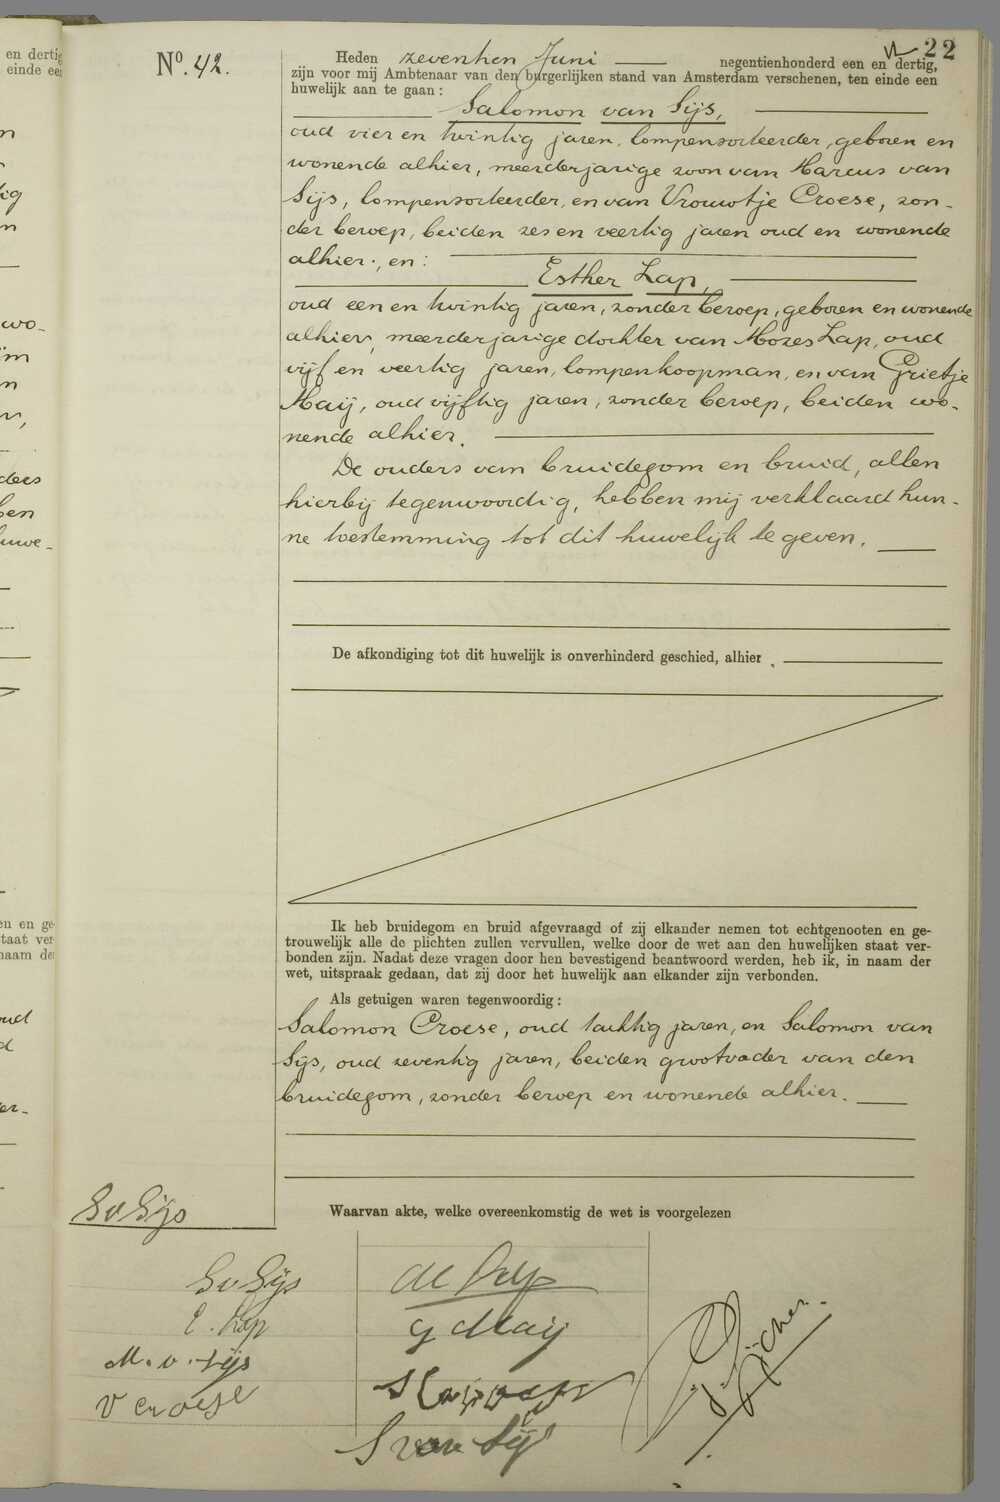 22
No. 42.
Heden zeventien Juni negentienhonderd een en dertig,
zijn voor mij Ambtenaar van den burgerlijken stand van Amsterdam verschenen, ten einde een
huwelijk aan te gaan:
Salomon van Sijs,
oud vier en twintig jaren, lompensorteerder, geboren en
wonende alhier, meerderjarige zoon van Marcus van
Sijs, lompensorteerder, en van Vrouwtje Croese, zon-
der beroep, beiden zes en veertig jaren oud en wonende
alhier., en:
Esther Lap,
oud een en twintig jaren, zonder beroep, geboren en wonende
alhier, meerderjarige dochter van Mozes Lap, oud
vijf en veertig jaren, lompenkoopman, en van Grietje
Maij, oud vijftig jaren, zonder beroep, beiden wo-
nende alhier.
De ouders van bruidegom en bruid, allen
hierbij tegenwoordig, hebben mij verklaard hun-
ne toestemming tot dit huwelijk te geven.
De afkondiging tot dit huwelijk is onverhinderd geschied, alhier.
Ik heb bruidegom en bruid afgevraagd of zij elkander nemen tot echtgenooten en ge-
trouwelijk alle de plichten zullen vervullen, welke door de wet aan den huwelijken staat ver-
bonden zijn. Nadat deze vragen door hen bevestigend beantwoord werden, heb ik, in naam der
wet, uitspraak gedaan, dat zij door het huwelijk aan elkander zijn verbonden.
Als getuigen waren tegenwoordig:
Salomon Croese, oud tachtig jaren, en Salomon van
Sijs, oud zeventig jaren, beiden grootvader van den
bruidegom, zonder beroep en wonende alhier.
Waarvan akte, welke overeenkomstig de wet is voorgelezen
S v Sijs
S v Sijs
E. Lap
M. v. Sijs
V Croese
M Lap
G Maij
S van Sijs